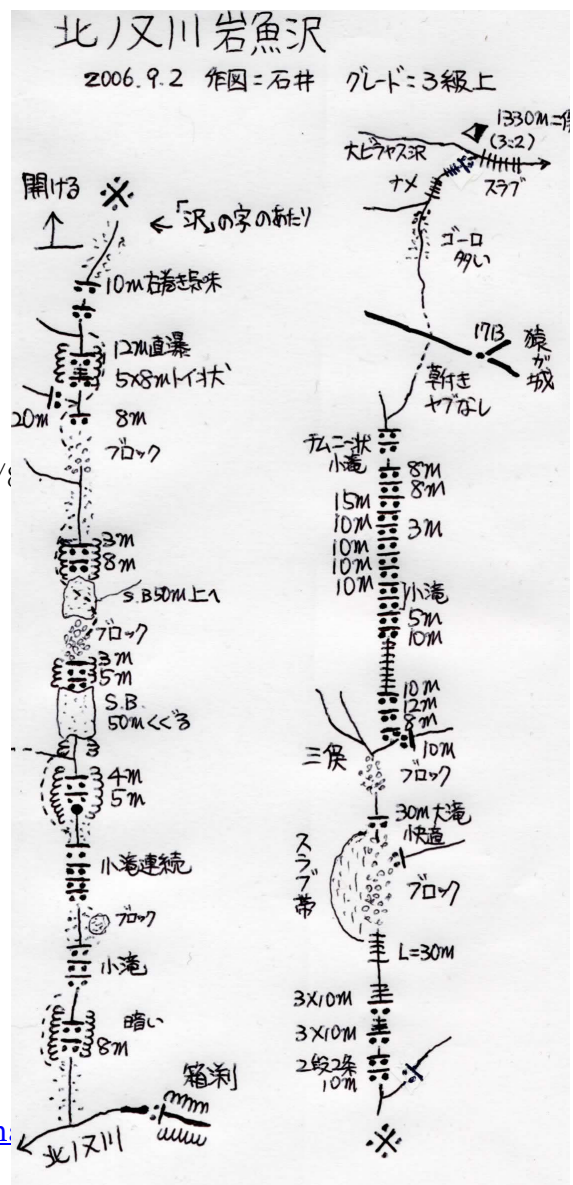 北ノ又川岩魚沢
2006.9.2 作図=石井 グレード=3級上
開ける
←「沢」の字のあたり
10m右巻き気味
12m直瀑
5×8mトイ状
20m
8m
ブロック
3m
8m
S.B50m上へ
ブロック
3m
5m
S.B
50mくぐる
4m
5m
小滝連続
ブロック
小滝
暗い
8m
箱渕
北ノ又川
1330m=
(3:2)
大ビラヤス沢
ナメ
スラブ
ゴーロ
多い
1713
猿が城
草付き
ヤブなし
チムニー状
小滝
8m
8m
15m
10m
3m
10m
10m
10m
小滝
5m
10m
10m
12m
8m
10m
三俣
ブロック
30m大滝
快適
スラブ帯
ブロック
L=30m
3×10m
3×10m
2段2条
10m